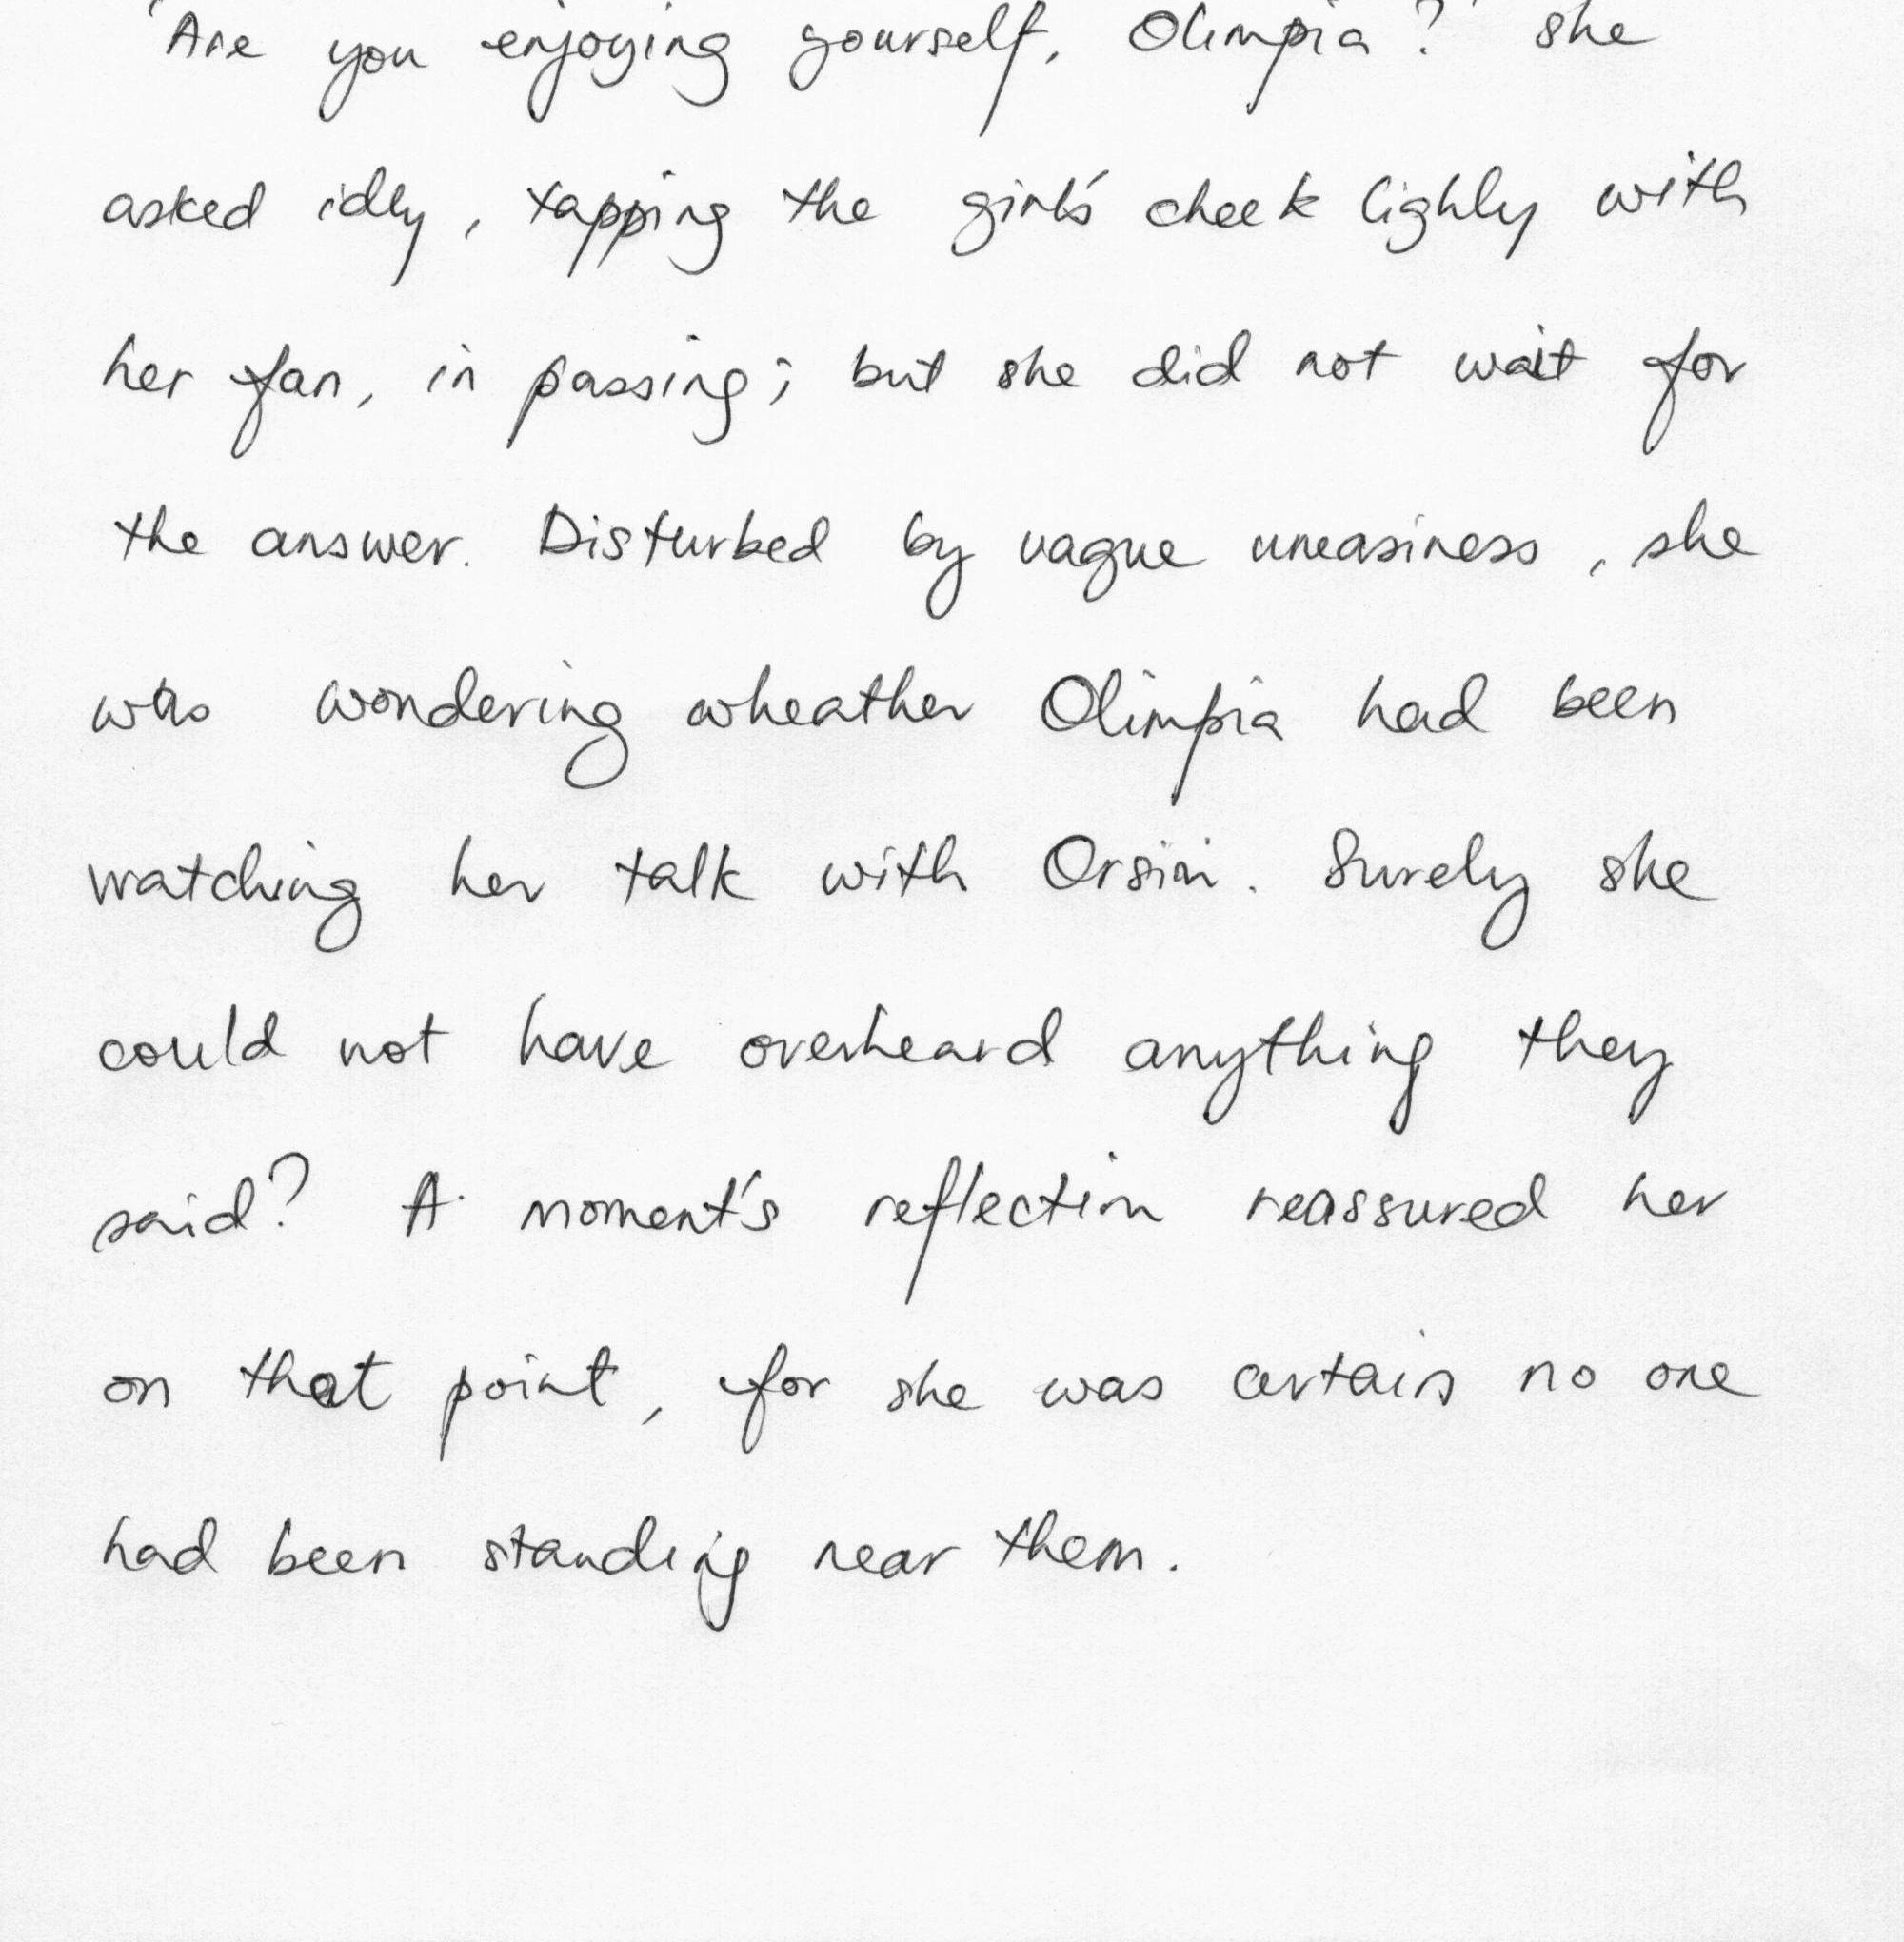 'Are you enjoying yourself, Olimpia?' she
asked idly, tapping the girl's cheek lighly with
her fan, in passing; but she did not wait for
the answer. Disturbed by vague uneasiness, she
was wondering wheather Olimpia had been
watching her talk with Orsini. Surely she
could not have overheard anything they
said? A moment's reflection reassured her
on that point, for she was certain no one
had been standing near them.